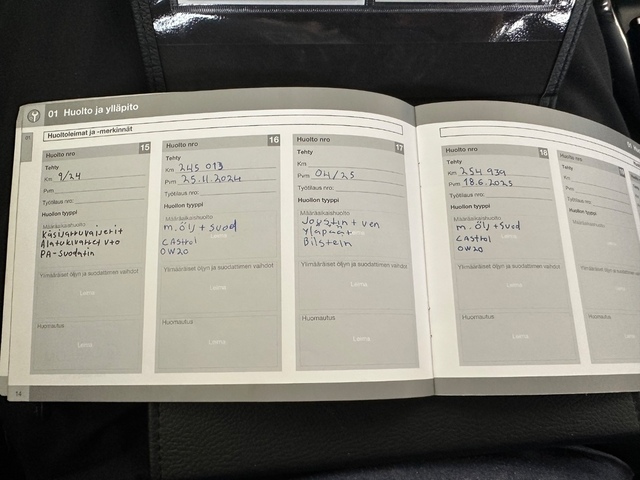 01 Huolto ja ylläpito
01
Huoltoleimat ja -merkinnät
Huolto nro 15
Tehty
Km 9/24
Pvm
Työtilaus nro:
Huollon tyyppi
Määräaikaishuolto
Käsijarruvaijerit
Alatukivarret v+o
PA-Suodatin
Ylimääräiset öljyn ja suodattimen vaihdot
Leima
Huomautus
Leima
14
Huolto nro 16
Tehty
Km 245 013
Pvm 25.11.2024
Työtilaus nro:
Huollon tyyppi
Määräaikaishuolto
m.ölj + suod
CASTROL
0W20
Ylimääräiset öljyn ja suodattimen vaihdot
Leima
Huomautus
Leima
Huolto nro 17
Tehty
Km
Pvm 04/25
Työtilaus nro:
Huollon tyyppi
Määräaikaishuolto
Joustin + ven
Yläpäät
Bilstein
Ylimääräiset öljyn ja suodattimen vaihdot
Leima
Huomautus
Leima
Huolto nro 18
Tehty
Km 254 939
Pvm 18.6.2025
Työtilaus nro:
Huollon tyyppi
Määräaikaishuolto
m.ölj + suod
CASTROL
0W20
Ylimääräiset öljyn ja suodattimen vaihdot
Leima
Huomautus
Leima
Huolto nro
Tehty
Km
Pvm
Työtilaus nro:
Huollon tyyppi
Määräaikaishuolto
Huomautus